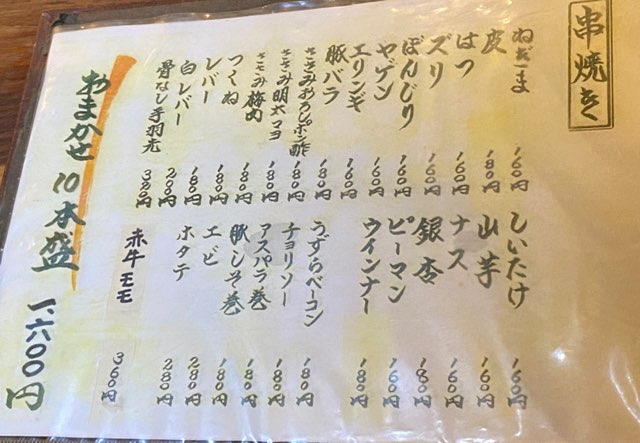 串焼き
ねぎま 160円
皮 180円
はつ 160円
ズリ 160円
ぼんじり 160円
ヤゲン 160円
エリンギ 160円
豚バラ 180円
ささみおろしポン酢 180円
ささみ明太マヨ 180円
ささみ梅肉 180円
つくね 180円
レバー 180円
白レバー 200円
骨なし手羽先 380円
しいたけ 160円
山芋 160円
ナス 160円
銀杏 180円
ピーマン 160円
ウインナー 180円
うずらベーコン 180円
チョリソー 180円
アスパラ巻 180円
豚しそ巻 180円
エビ 280円
ホタテ 280円
赤牛モモ 360円
おまかせ10本盛 1,600円